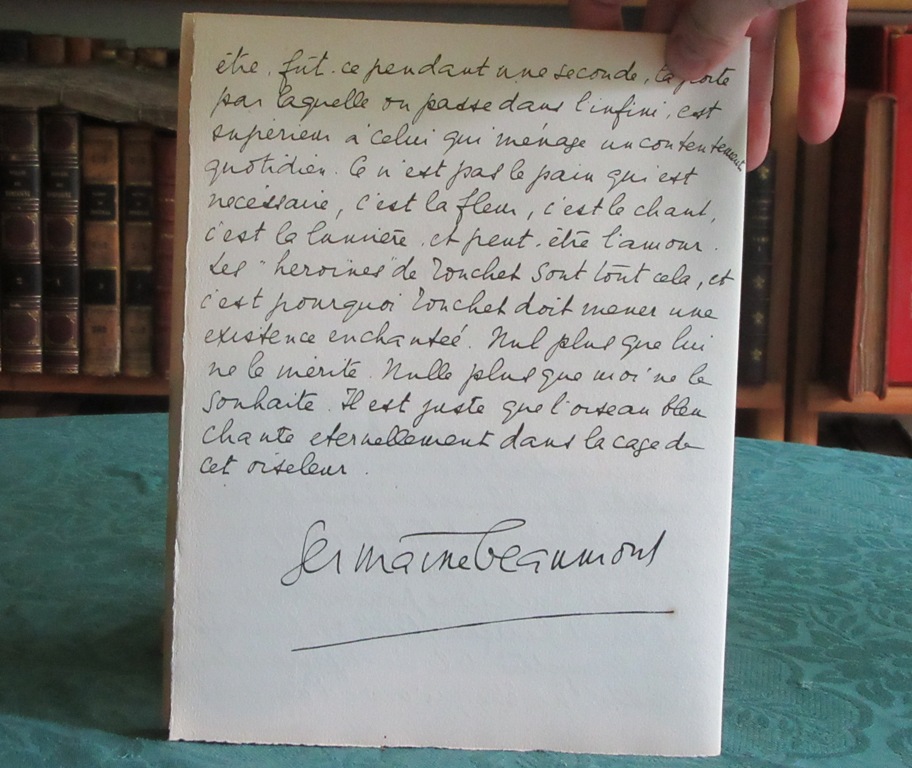 être, fût-ce pendant une seconde, la porte
par laquelle on passe dans l'infini, est
supérieur à celui qui ménage un contentement
quotidien. Ce n'est pas le pain qui est
nécessaire, c'est la fleur, c'est le chant,
c'est la lumière, et peut-être l'amour.
Les "heroïnes" de Touchet sont tout cela, et
c'est pourquoi Touchet doit mener une
existence enchanteé. Nul plus que lui
ne le mérite. Nulle plus que moi ne le
souhaite. Il est juste que l'oiseau bleu
chante eternellement dans la cage de
cet oiseleur.
Germaine Beaumont